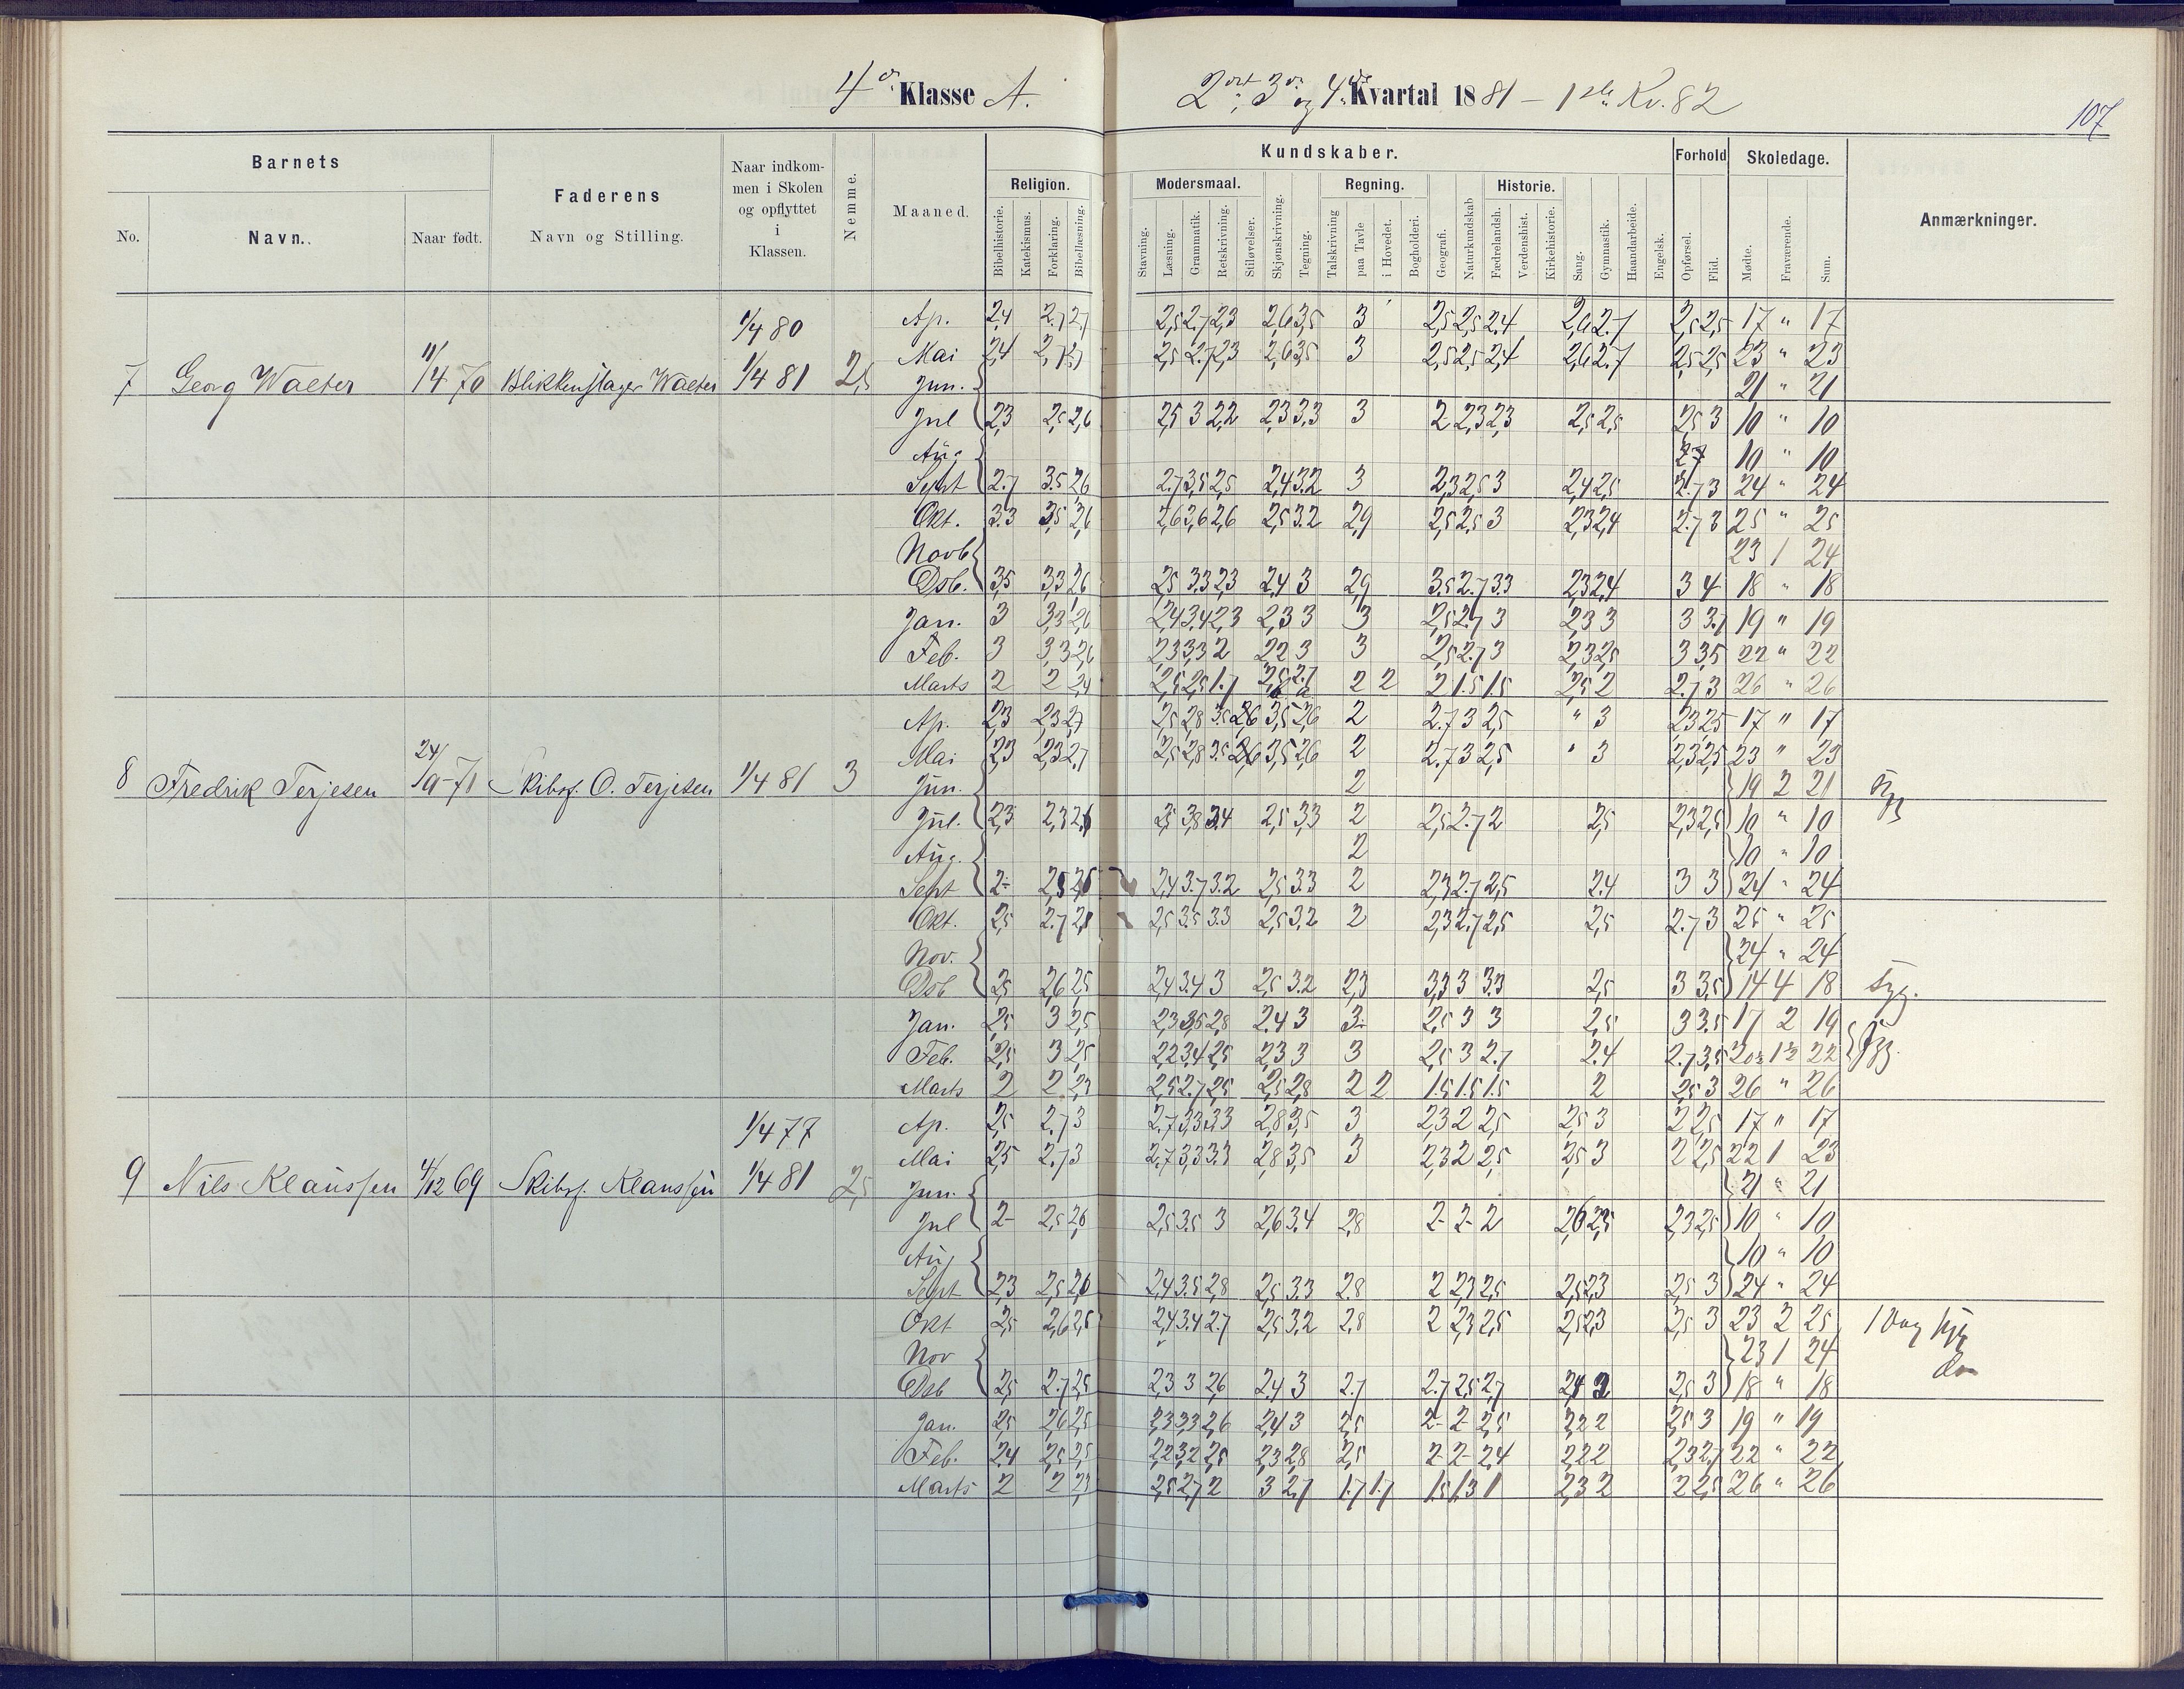 4de Klasse A.
2det, 3die og 4de Kvartal 1881 – 1ste Kv. 82
107
Barnets
No.
Navn.
Naar født.
Faderens
Navn og Stilling.
Naar indkom-
men i Skolen
og opflyttet
i
Klassen.
Nemme.
Maaned.
Kundskaber.
Religion.
Bibelhistorie.
Katekismus.
Forklaring.
Bibellæsning.
Modersmaal.
Stavning.
Læsning.
Grammatik.
Retskrivning.
Stiløvelser.
Skjønskrivning.
Tegning.
Regning.
Talskrivning
paa Tavle
i Hovedet.
Bogholderi.
Geografi.
Naturkundskab
Historie.
Fædrelandsh.
Verdenshist.
Kirkehistorie.
Sang.
Gymnastik.
Haandarbeide.
Engelsk.
Forhold
Opførsel.
Flid.
Skoledage.
Mødte.
Fraværende.
Sum.
Anmærkninger.
1/4 80
7 Georg Walter 11/4 70 Blikkenslager Walter 1/4 81 2,5
Ap. 2,4 2.7 2,7 2,5 2.7 2,3 2,6 3,5 3 2,5 2,5 2,4 2,6 2.7 2,5 2,5 17 " 17
Mai 2,4 2,7 2,7 2,5 2.7 2,3 2,6 3,5 3 2,5 2,5 2,4 2,6 2.7 2,5 2,5 23 " 23
Jun. 21 " 21
Jul 2,3 2,5 2,6 2,5 3 2,2 2,3 3,3 3 2 2,3 2,3 2,5 2,5 2,5 3 10 " 10
Aug 10 " 10
Sept 2.7 3.5 2,6 2.7 3,5 2,5 2,4 3.2 3 2,3 2,5 3 2,4 2,5 2.7 3 24 " 24
Okt. 3.3 3,5 2,6 2,6 3,6 2,6 2,5 3.2 2,9 2,5 2,5 3 2,3 2,4 2.7 3 25 " 25
Novb 23 1 24
Dsb. 3,5 3,3 2,6 2,5 3.3 2,3 2,4 3 2,9 3.5 2.7 3.3 2,3 2,4 3 4 18 " 18
Jan. 3 3,3 2,6 2,4 3,4 2,3 2,3 3 3 2,5 2,7 3 2,3 3 3 3.7 19 " 19
Feb. 3 3,3 2,6 2,3 3,3 2 2,2 3 3 2,5 2.7 3 2,3 2,5 3 3,5 22 " 22
Marts 2 2 2,4 2,5 2,5 1.7 2,5 2.7 2 2 2 1.5 1.5 2,5 2 2.7 3 26 " 26
8 Fredrik Terjesen 24/9-71 Skibsf. O. Terjesen 1/4 81 3
Ap. 2,3 2,3 2,7 2,5 2,8 3.5 2,6 3,5 2,6 2 2.7 3 2,5 " 3 2,3 2,5 17 " 17
Mai 2,3 2,3 2,7 2,5 2,8 3.5 2,6 3,5 2,6 2 2.7 3 2,5 " 3 2,3 2,5 23 " 23
Jun. 2 19 2 21 Syg
Jul. 2,3 2,3 2,6 2,5 3,8 3,4 2,5 3,3 2 2,5 2.7 2 2,5 2,3 2,5 10 " 10
Aug. 2 10 " 10
Sept 2- 2,5 2,6 2,4 3.7 3.2 2,5 3.3 2 2,3 2.7 2,5 2.4 3 3 24 " 24
Okt. 2,5 2.7 2,8 2,5 3.5 3.3 2,5 3,2 2 2,3 2.7 2,5 2,5 2.7 3 25 " 25
Nov. 24 " 24
Dsb 2,5 2,6 2,5 2,4 3.4 3 2,5 3.2 2,3 3,3 3 3.3 2,5 3 3,5 14 4 18 Syg.
Jan. 2,5 3 2,5 2,3 3,5 2,8 2,4 3 3- 2,5 3 3 2,5 3 3,5 17 2 19
Feb. 2,5 3 2,5 2,2 3,4 2,5 2,3 3 3 2,5 3 2.7 2.4 2.7 3,5 20½ 1½ 22 Syg.
Marts 2 2 2,3 2,5 2.7 2,5 2,5 2,8 2 2 1.5 1.5 1.5 2 2,5 3 26 " 26
1/4 77
9 Nils Klaussen 4/12 69 Skibsf. Klaussen 1/4 81 2,5
Ap. 2,5 2.7 3 2.7 3,3 3.3 2,8 3,5 3 2,3 2 2,5 2,5 3 2 2,5 17 " 17
Mai 2,5 2.7 3 2.7 3,3 3.3 2,8 3,5 3 2,3 2 2,5 2,5 3 2 2,5 22 1 23
Jun. 21 " 21
Jul 2- 2,5 2,6 2,5 3.5 3 2,6 3.4 2,8 2- 2- 2 2,6 2,5 2,3 2,5 10 " 10
Aug 10 " 10
Sept 2,3 2,5 2,6 2,4 3.5 2,8 2,5 3.3 2.8 2 2,3 2,5 2,5 2,3 2,5 3 24 " 24
Okt 2,5 2,6 2,5 2,4 3.4 2.7 2,5 3,2 2,8 2 2,3 2,5 2,5 2,3 2,5 3 23 2 25 1 Dag syg
Nov 23 1 24 do
Dsb 2,5 2.7 2,5 2,3 3 2,6 2.4 3 2.7 2.7 2,5 2,7 2,4 2 2,5 3 18 " 18
Jan. 2,5 2,6 2,5 2,3 3,3 2,6 2,4 3 2,5 2- 2 2,5 2,2 2 2,5 3 19 " 19
Feb. 2,4 2,5 2,5 2,2 3,2 2,5 2,3 2,8 2,5 2- 2- 2,4 2,2 2 2,3 2,7 22 " 22
Marts 2 2 2,3 2,5 2,7 2 3 2,7 1.7 1.7 1.5 1.3 1 2,3 2 2 2,5 26 " 26